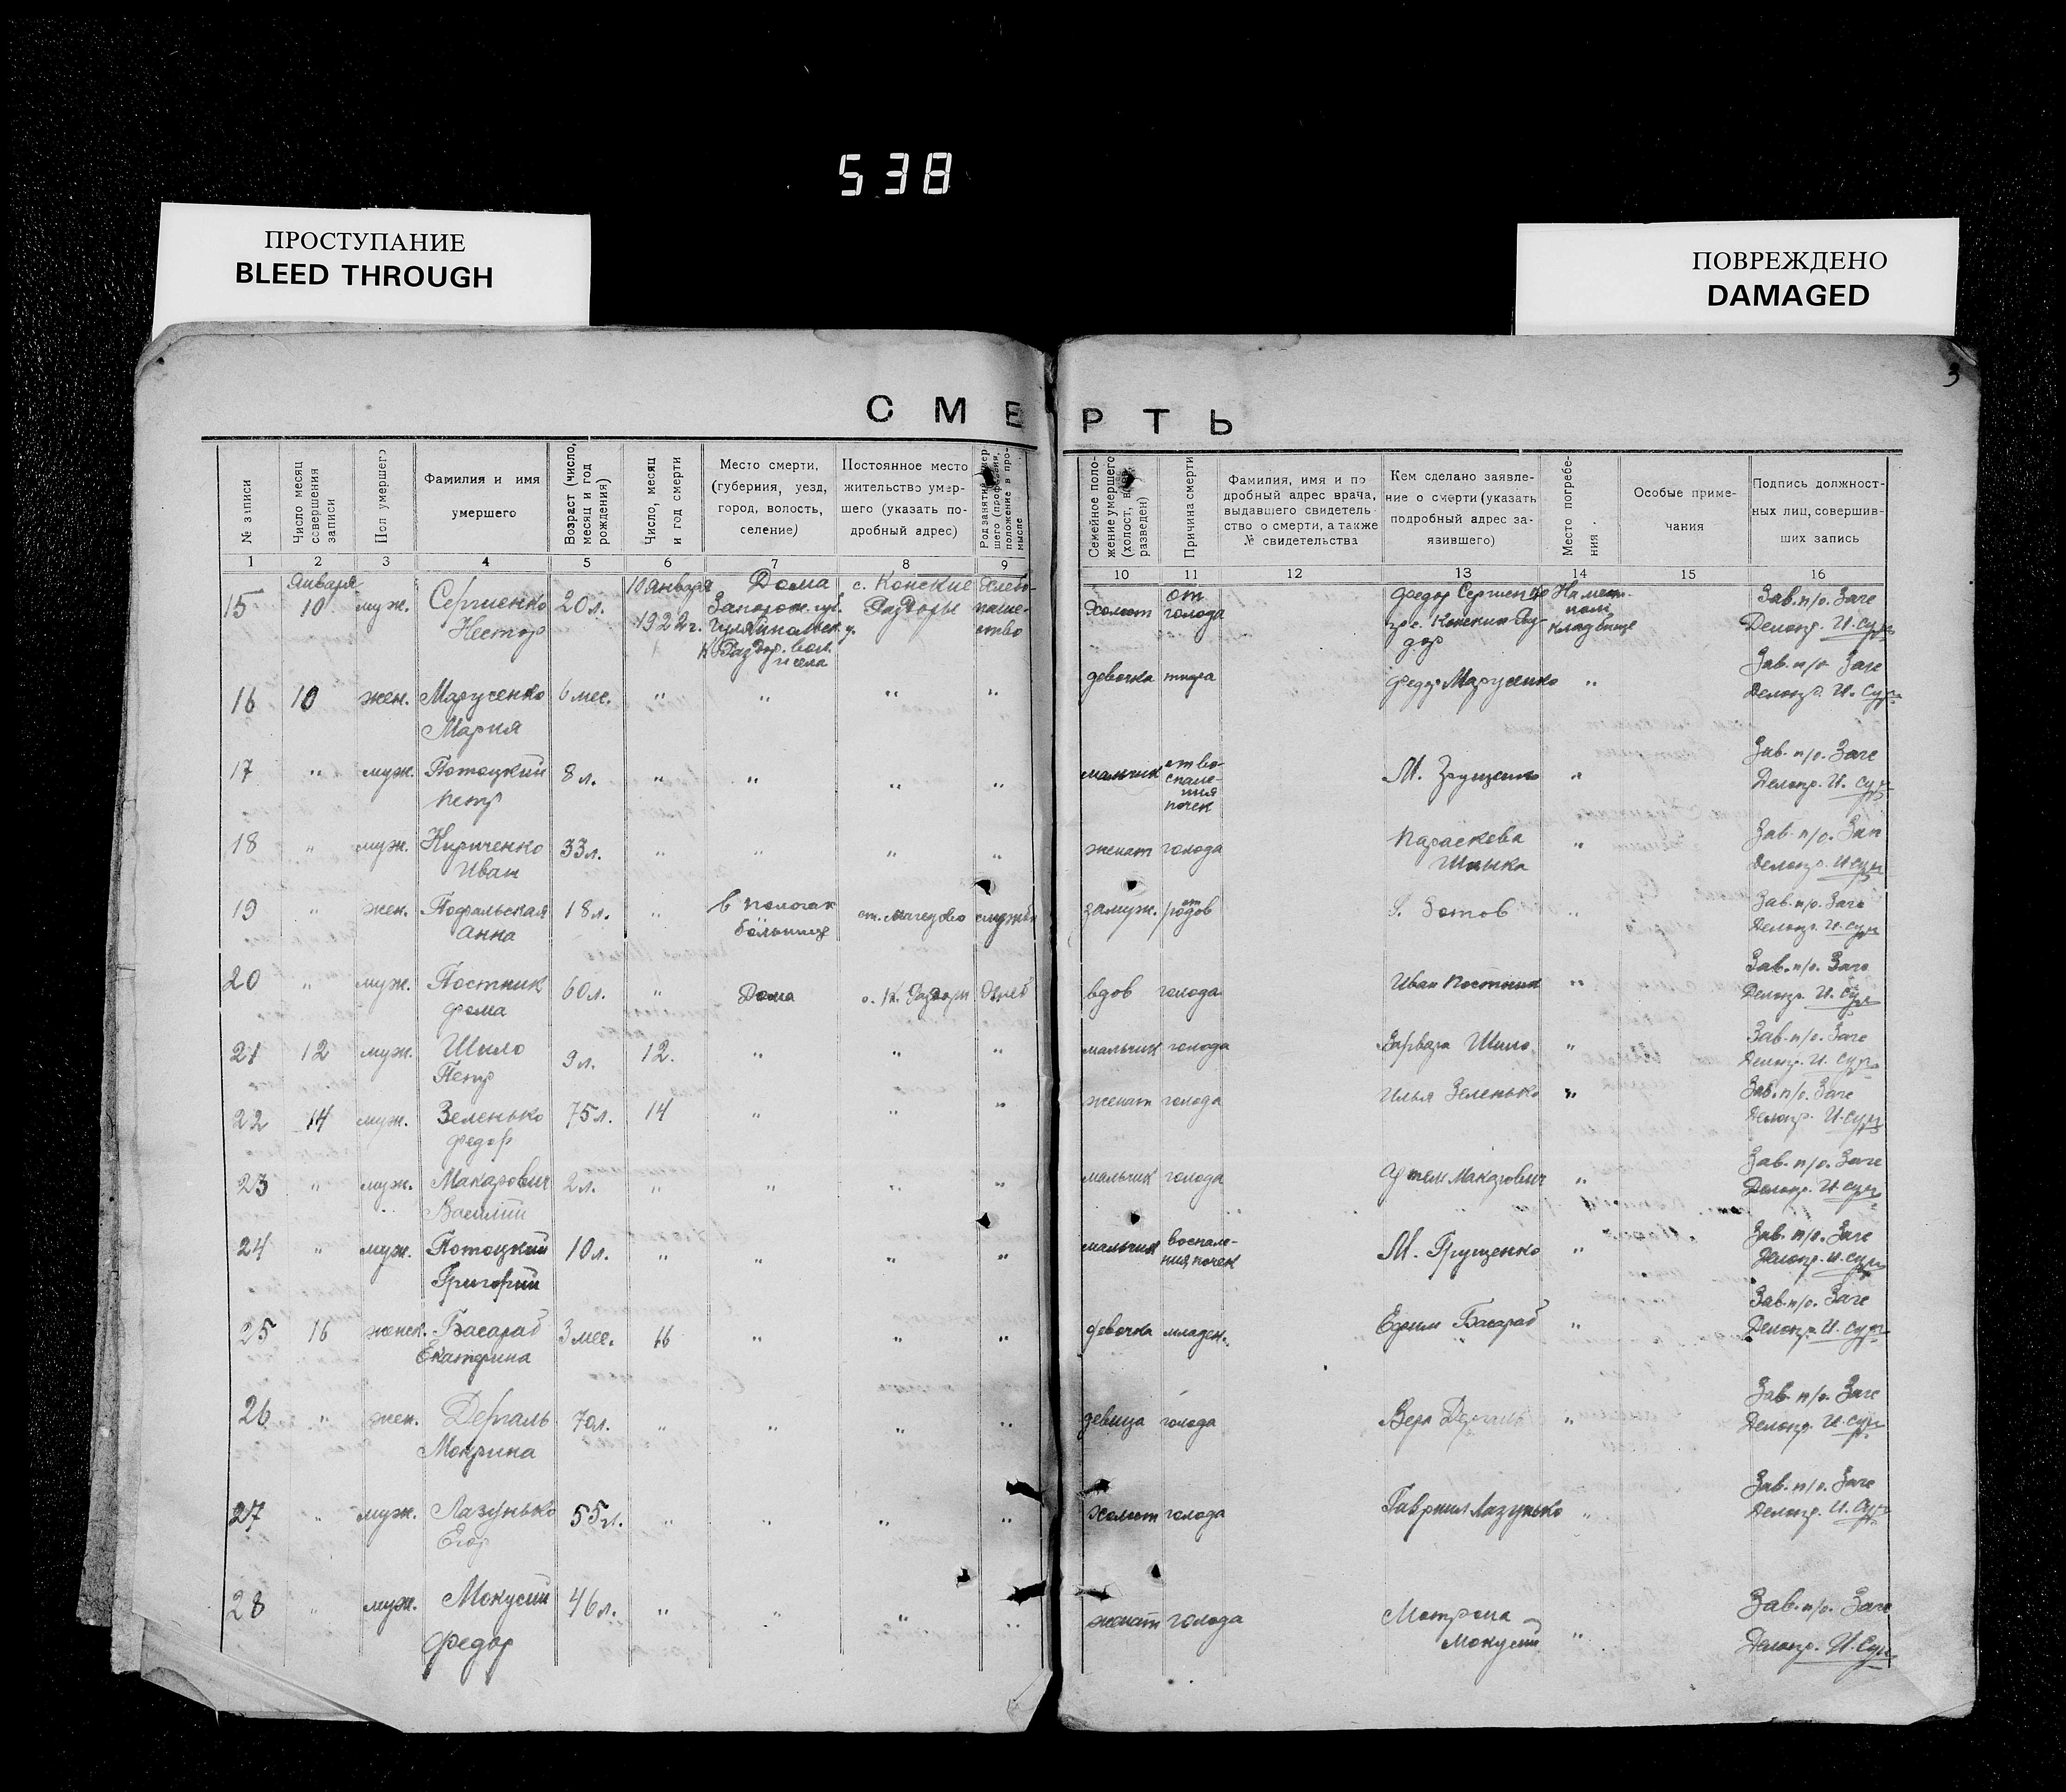 538
ПРОСТУПАНИЕ
BLEED THROUGH
ПОВРЕЖДЕНО
DAMAGED
3
СМЕРТЬ
№ записи
Число месяц совершения записи
Пол умершего
Фамилия и имя умершего
Возраст (число, месяц и год рождения)
Число, месяц и год смерти
Место смерти, (губерния, уезд, город, волость, селение)
Постоянное место жительство умершего (указать подробный адрес)
Семейное положение умершего (холост,
разведен)
Причина смерти
Фамилия, имя и подробный адрес врача, выдавшего свидетельство о смерти, а также № свидетельства
Кем сделано заявление о смерти (указать подробный адрес заявившего)
Место погребения.
Особые примечания
Подпись должностных лиц, совершивших запись
1 2 3 4 5 6 7 8 9 10 11 12 13 14 15 16
15 Января 10 муж. Сергиенко Нестор 20 л. 10 января 1922 г. Дома Запорож. губ. с. Конские Раздоры холост от голода Федор Сергиенко кладбище Зав. п/о. Заге Делопр. И. Суп
16 10 жен. Марусенко Мария 6 мес. " " " " девочка тифа Федор Марусенко " Зав. п/о Заге Делопр. И. Суп
17 " муж. Потоцкий Петр 8 л. " " " " мальчик от воспаления почек М. " Зав. п/о. Заге Делопр. И. Суп
18 " муж. Кириченко Иван 33 л. " " " " женат голода Параскева " Зав. п/о. Делопр. И. Суп
19 " жен. Анна 18 л. " в Пологах больнице замуж. от родов Зотов " Зав. п/о. Заге Делопр. И. Суп
20 " муж. Постник Фома 60 л. " Дома с. К. Раздоры вдов голода Иван Постник " Зав. п/о. Заге Делопр. И. Суп
21 12 муж. Шило Петр 9 л. 12. " " " мальчик голода Варвара Шило " Зав. п/о. Заге Делопр. И. Суп
22 14 муж. Зеленько Федор 75 л. 14 " " " женат голода Илья Зеленько " Зав. п/о. Заге Делопр. И. Суп
23 " муж. Макарович Василий 2 л. " " " " мальчик голода Артем Макарович " Зав. п/о. Заге Делопр. И. Суп
24 " муж. Потоцкий Григорий 10 л. " " " " мальчик воспаления почек М. Грущенко " Зав. п/о. Заге Делопр. И. Суп
25 16 женск. Басараб Екатерина 3 мес. 16 " " " девочка младен. Ефим Басараб " Зав. п/о. Заге Делопр. И. Суп
26 " жен. Дергаль Мокрина 70 л. " " " " девица голода Вера Дергаль " Зав. п/о. Заге Делопр. И. Суп
27 " муж. Лазунько Егор 55 л. " " " " холост голода Гавриил Лазунько " Зав. п/о. Заге Делопр. И. Суп
28 " муж. Мокусий Федор 46 л. " " " " женат голода Мотрона Мокусий " Зав. п/о. Заге Делопр. И. Суп